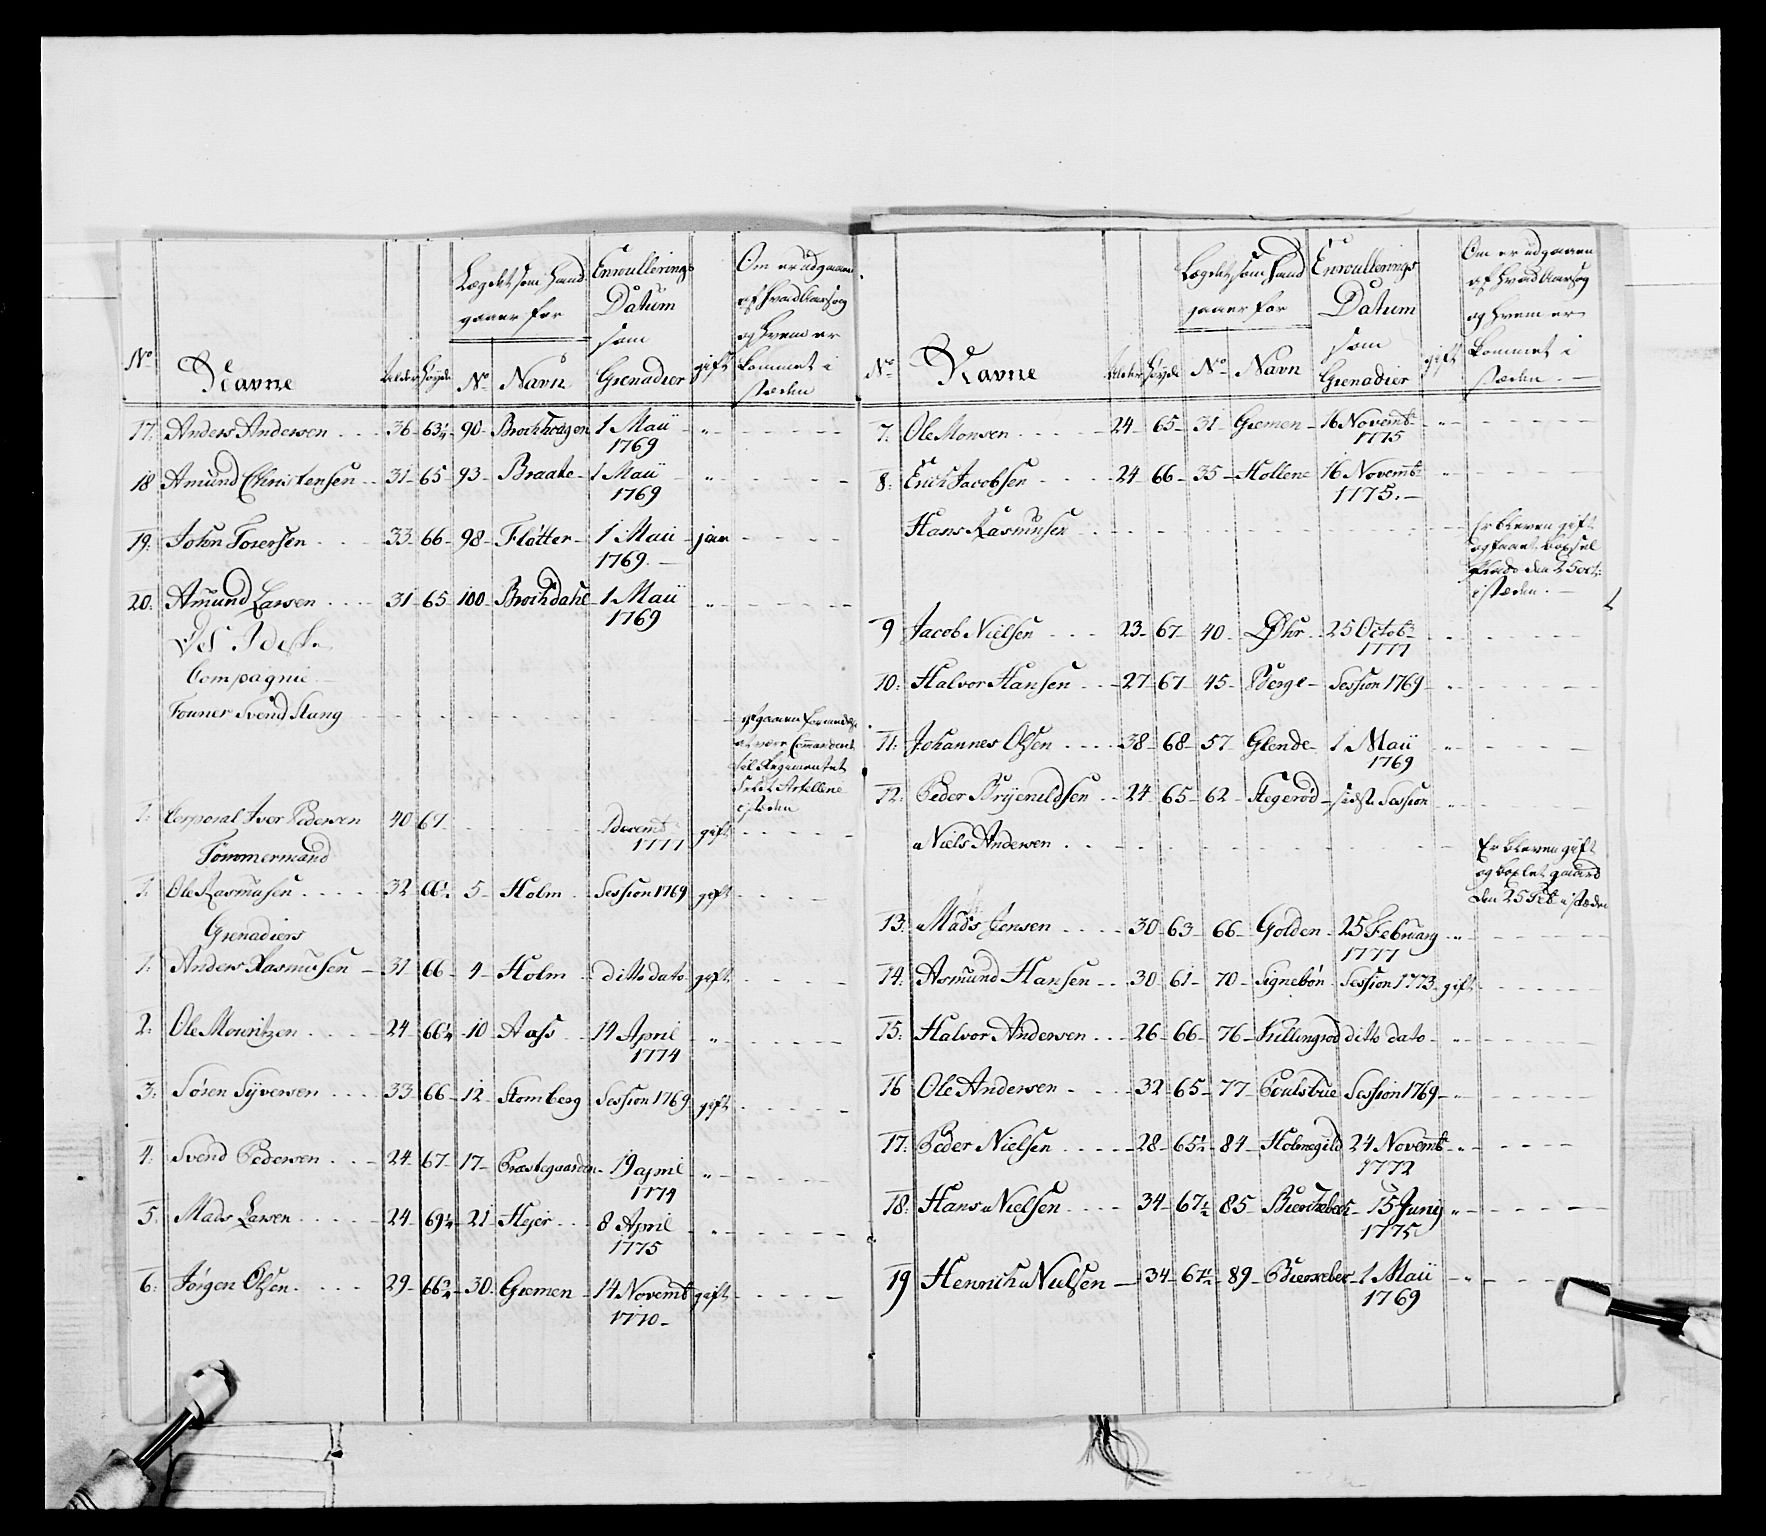 Lægdet som hand
gaaer for
Enroullerings
Datum
som
Grenadier
Om er udgaaen
af hvad Aarsag
og hvem er
kommet i
stæden
No Navne Alder Høyde No Navn gift
17. Anders Andersen 36 63¼ 90 1 Maii
1769
18 Amund Christensen 31 65 93 Braate 1 Maii
1769
19. Johan 33 66 98 Fløtter 1 Maii jaa
1769.
20. Amund Larsen 31 65 100 Brochdahl 1 Maii
1769
Compagnie
Fourier Svend Stang
til Regimentet
i stæden
1. Corporal Iver Pedersen 40 67 Decemb gift
1777
Tømmermand
1. Ole Rasmusen 32 66½ 5 Holm Session 1769 gift
Grenadiers
1. Anders Rasmusen 31 66 4 Holm ditto dato gift
2. Ole Mouritzen 24 66¼ 10 Aass 14 April
1774
3. Søren Syversen 33 66 12 Stomberg Session 1769 gift
4. Svend Pedersen 24 67 17 Præstegaarden 19 april
1774
5. Mads Larsen 24 69¼ 21 Hejer 8 April
1775
6. Jørgen Olsen 29 66¾ 30 Gremen 14 Novemb gift
1770
Lægdet som hand
gaaer for
Enroullerings
Datum
som
Grenadier
Om er udgaaen
af hvad Aarsag
og hvem er
kommet i
stæden.
No Navne Alder Høyde No Navn gift
7. Ole Monsen 24 65 31 Gremen 16 Novemb
1775
8. Erich Jacobsen 24 66 35 Hollene 16 Novemb
1775.
Hans Rasmusen Er bleven gift
og faaet
Plads den 25 oct:
i stæden.
9 Jacob Nielsen 23 67 40 Øhr 25 Octob
1777
10. Halvor Hansen 27 67 45 Berge Session 1769
11. Johannes Olsen 38 68 57 Glende 1 Maii
1769
12. Peder 24 65 62 Hegerød sidste Session
Niels Andersen Er bleven gift
og gaard
den 25 Feb i stæden
13. Mads Jensen 30 63 66 Golden 25 Februarij
1777
14. Asmund Hansen 30 61 70 Signebøn Session 1773 gift
15. Halvor Andersen 26 66 76 ditto dato
16 Ole Andersen 32 65 77 Session 1769
17. Peder Nielsen 28 65½ 84 Holmegild 24 Novemb
1772
18. Hans Nielsen 34 67½ 85 15 Junij
1775
19 Henrich Nielsen 34 67½ 89 1 Maii
1769